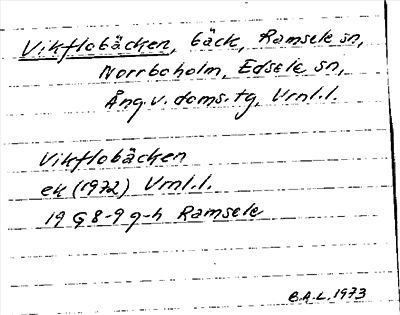 Vikflobäcken, bäck, Ramsele sn,
Norrboholm, Edsele sn,
Ång. v. doms. tg, Vrnl.l.
Vikflobäcken
ek (1972) Vrnl.l.
19 G 8-9 g-h Ramsele
B.A.L. 1973